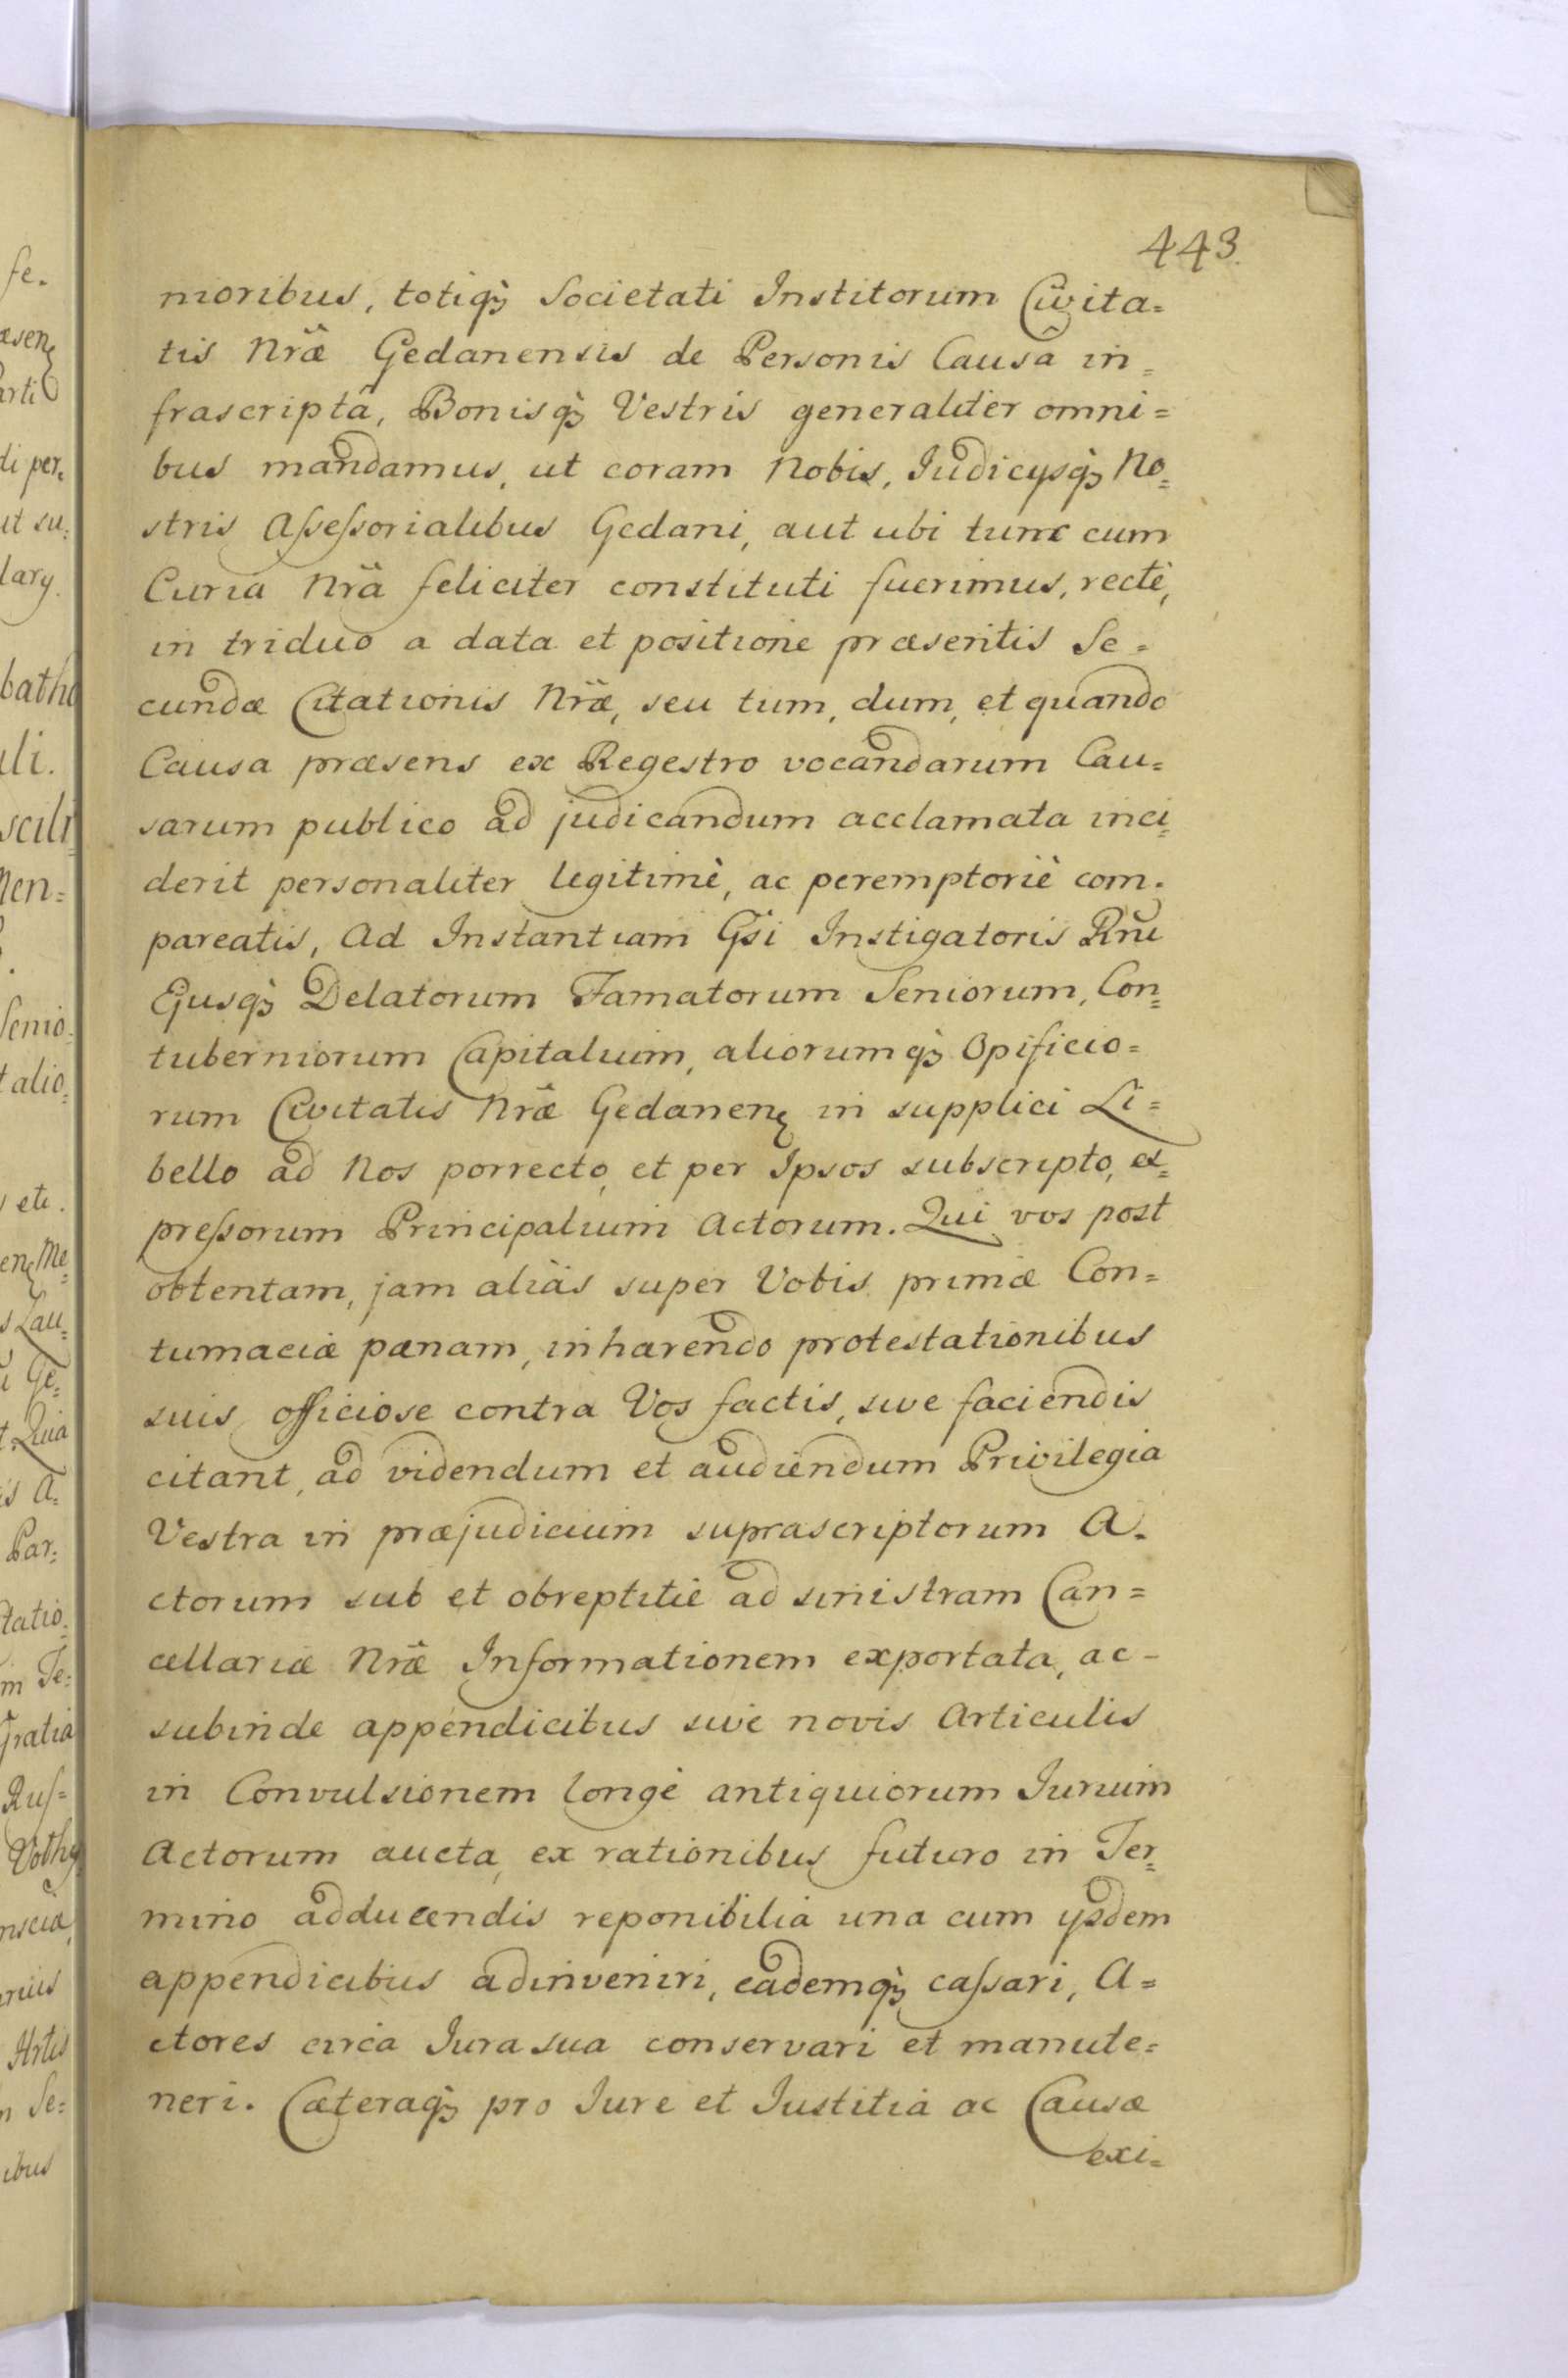 443.
nioribus, totiq; Societati Institorum Civita=
tis Nrae Gedanensis de Personis Causâ in=
frascriptâ, Bonisq; Vestris generaliter omni=
bus mandamus, ut coram Nobis, Judicysq; No=
stris Aſseſsorialibus Gedani, aut ubi tunc cum
Curia Nrâ feliciter constituti fuerimus, rectè,
in triduo a data et positione præsentis Se=
cundæ Citationis Nræ, seu tum, dum, et quando
Causa præsens ex Regestro vocandarum Cau=
sarum publico ad judicandum acclamata inci=
derit personaliter legitimè, ac peremptoriè com=
pareatis, Ad Instantiam Gsi Instigatoris Rni
Ejusq; Delatorum Famatorum Seniorum, Con=
tuberniorum Capitalium, aliorumq; Opificio=
rum Civitatis Nræ Gedanen in supplici Li=
bello ad Nos porrecto, et per Ipsos subscripto, ex=
preſsorum Principalium Actorum. Qui vos post
obtentam, jam aliàs super Vobis primæ Con=
tumaciæ pænam, inhærendo protestationibus
suis officiose contra Vos factis, sive faciendis
citant, ad videndum et audiendum Privilegia
Vestra in præjudicium suprascriptorum A=
ctorum sub et obreptitiè ad sinistram Can=
cellariæ Nræ Informationem exportata, ac-
subinde appendicibus sive novis Articulis
in Convulsionem longè antiquiorum Jurium
Actorum aucta, ex rationibus futuro in Ter=
mino adducendis reponibilia una cum ysdem
appendicibus adinveniri, eademq; caſsari, A=
ctores circa Jura sua conservari et manute=
neri. Cæteraq; pro Jure et Justitiâ ac Causæ
exi=